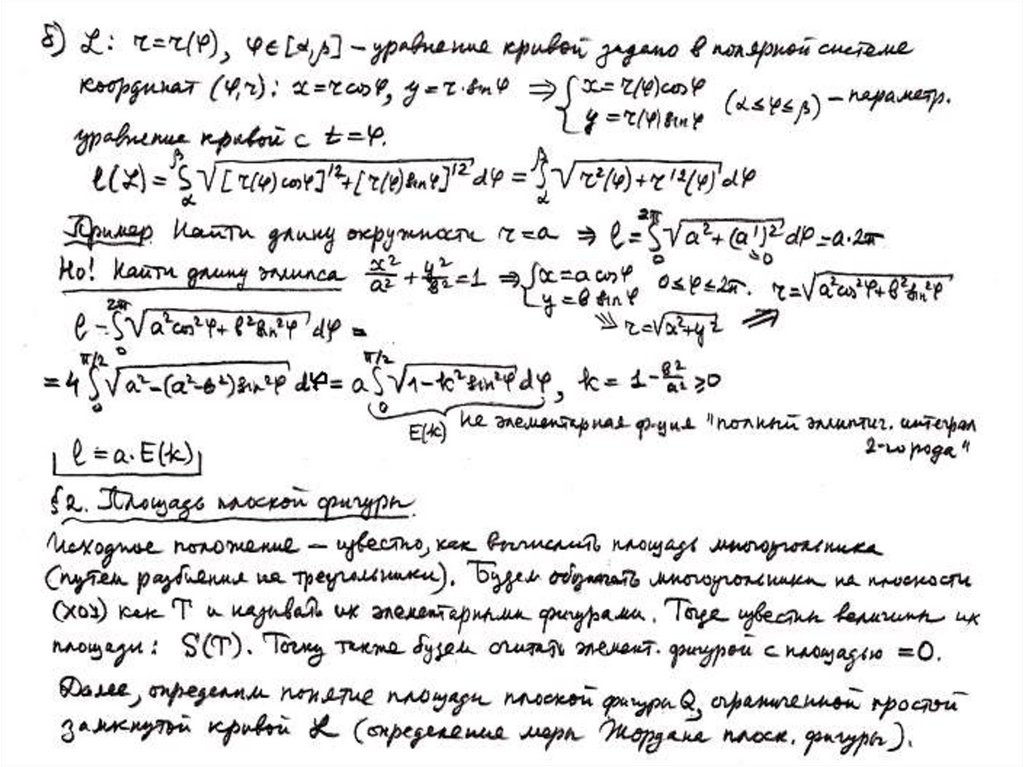 б) L: r=r(φ), φ∈[α,β] – уравнение кривой задано в полярной системе
координат (φ,r): x=r cosφ, y=r·sinφ ⇒ { x=r(φ)cosφ y=r(φ)sinφ (α≤φ≤β) – параметр.
уравнение кривой с t=φ.
l(L) = ∫_α^β √([r(φ)cosφ]'²+[r(φ)sinφ]'²) dφ = ∫_α^β √(r²(φ)+r'²(φ)) dφ
Пример. Найти длину окружности r=a ⇒ l=∫_0^{2π} √(a²+(a')²) dφ=a·2π
Но! Найти длину эллипса x²/a² + y²/b² = 1 ⇒ { x=a cosφ y=b sinφ 0≤φ≤2π. r=√(a²cos²φ+b²sin²φ)
⇒ r=√(x²+y²) ⇒
l = ∫_0^{2π} √(a²cos²φ+b²sin²φ) dφ =
= 4 ∫_0^{π/2} √(a²-(a²-b²)sin²φ) dφ = a ∫_0^{π/2} √(1-k²sin²φ) dφ, k = 1-b²/a² ≥0
E(k) не элементарная ф-ция "полный эллиптич. интеграл
2-го рода"
l = a·E(k)
§2. Площадь плоской фигуры
Исходное положение – известно, как вычислить площадь многоугольника
(путем разбиения на треугольники). Будем обозначать многоугольники на плоскости
(XOY) как T и называть их элементарными фигурами. Тогда известны величины их
площади: S(T). Точку также будем считать элемент. фигурой с площадью =0.
Далее, определим понятие площади плоской фигуры Q, ограниченной простой
замкнутой кривой L (определение меры Жордана плоск. фигуры).